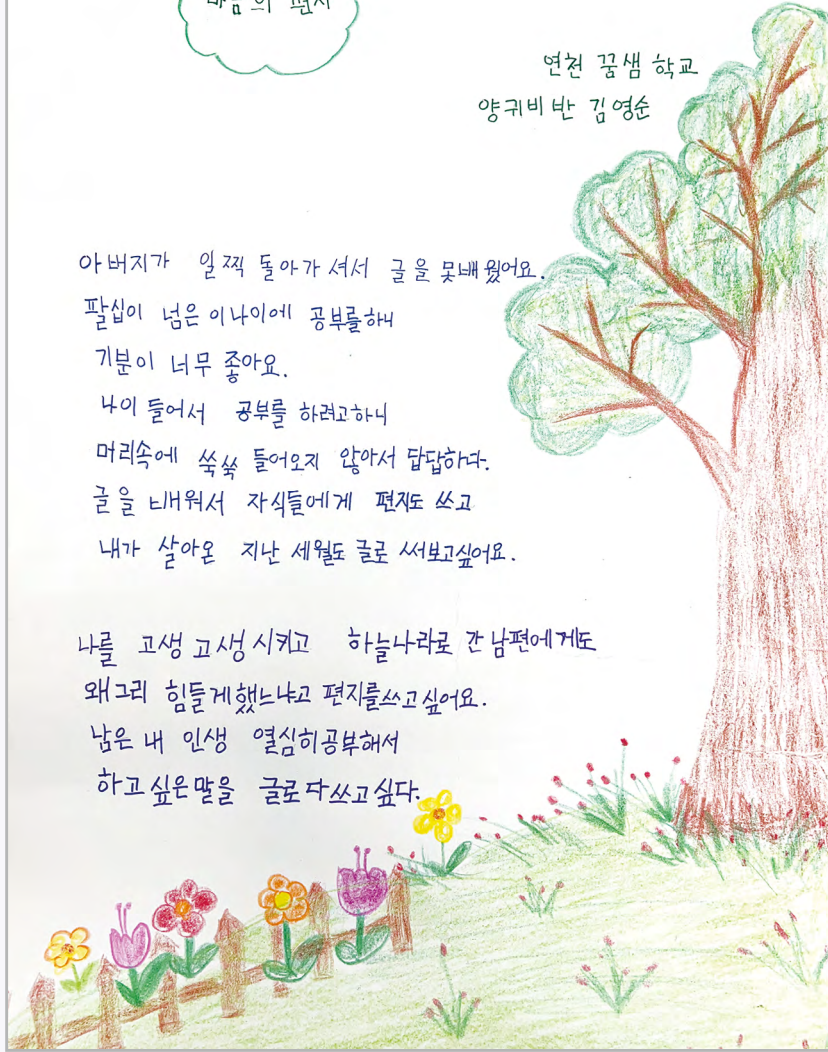 마음의 편지
연천 꿈샘 학교
양귀비반 김영순
아버지가 일찍 돌아가셔서 글을 못배웠어요.
팔십이 넘은 이나이에 공부를하니
기분이 너무 좋아요.
나이 들어서 공부를 하려고하니
머리속에 쏙쏙 들어오지 않아서 답답하다.
글을 배워서 자식들에게 편지도 쓰고
내가 살아온 지난 세월도 글로 써보고싶어요.
나를 고생 고생시키고 하늘나라로 간 남편에게도
왜그리 힘들게했느냐고 편지를쓰고싶어요.
남은 내 인생 열심히공부해서
하고싶은말을 글로다쓰고싶다.